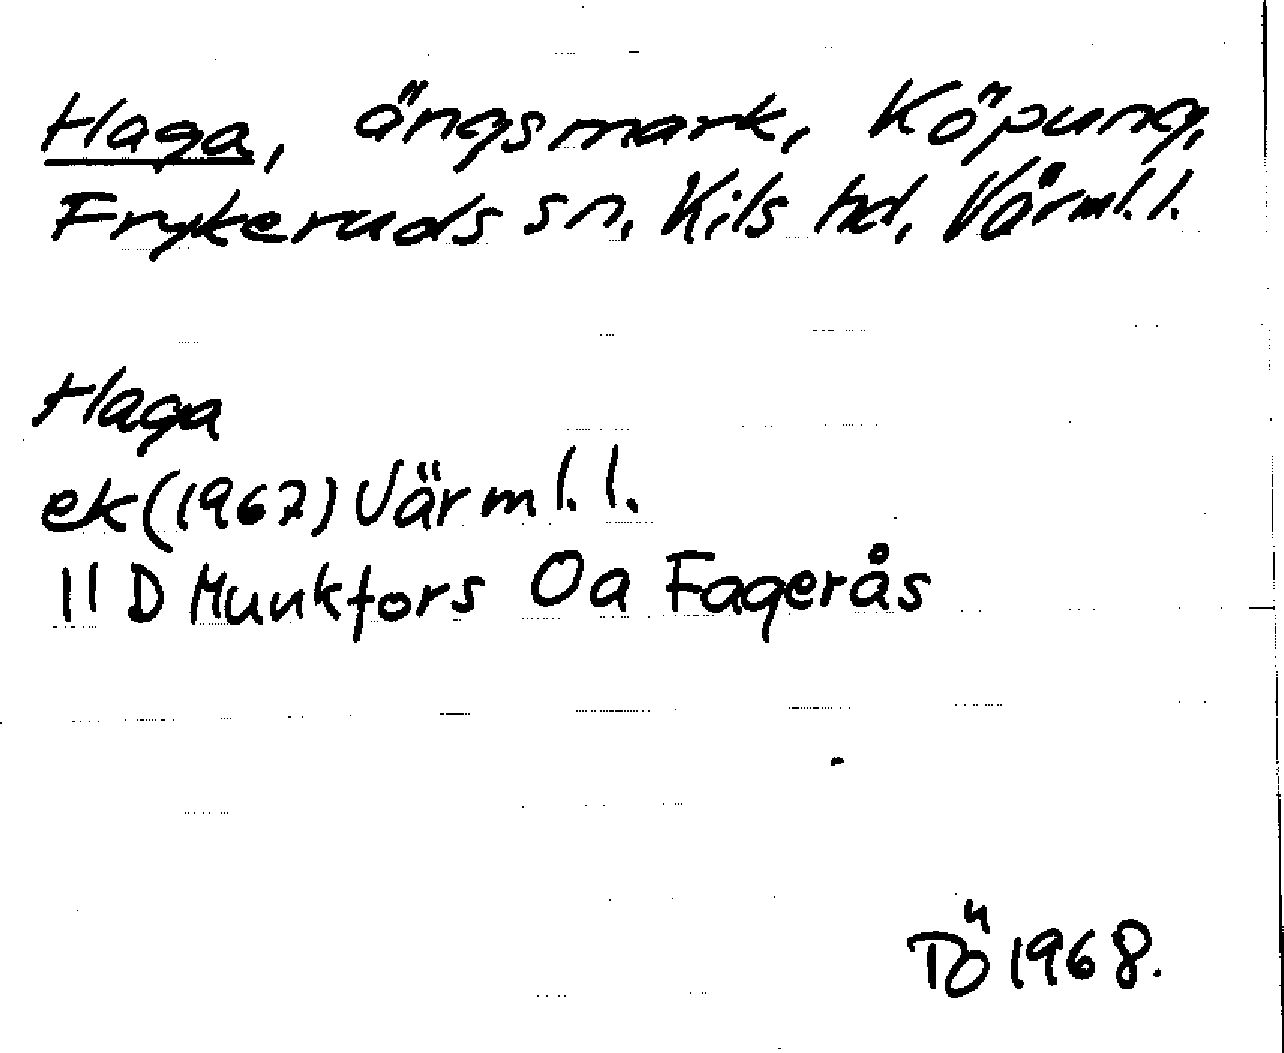 Haga, ängsmark, Köpung,
Frykeruds sn, Kils hd, Värml.l.
Haga
ek(1967) Värml.l.
11 D Munkfors 0a Fagerås
TÖ 1968.